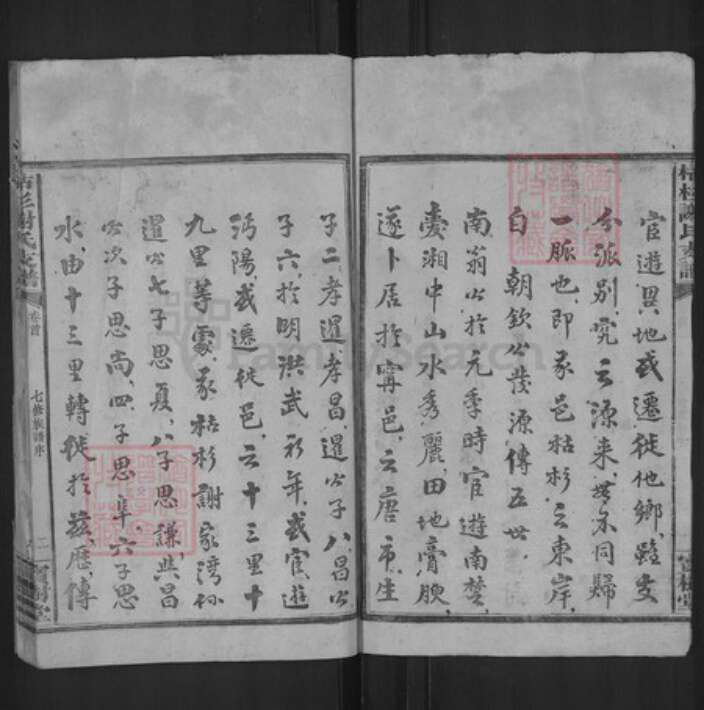 宦遊異地或遷徙他鄉雖支
分派別究云源来無不同歸
一脈也即豕邑枯杉之東岸
自 朝欽公發源傳五世
南翁公於元季時宦遊南楚
愛湘中山水秀麗田地膏腴
遂卜居於甯邑之唐市生
子二孝暹孝昌暹公子八昌公
子六於明洪武初年或宦遊
沔陽或遷徙邑之十三里十
九里等處豕枯杉謝家灣祢
暹公七子思夏八子思謙與昌
公次子思尚四子思阜六子思
水由十三里轉徙於兹歷傳
枯杉謝氏支譜
卷首
七修族譜序
二
寶樹堂
FamilySearch